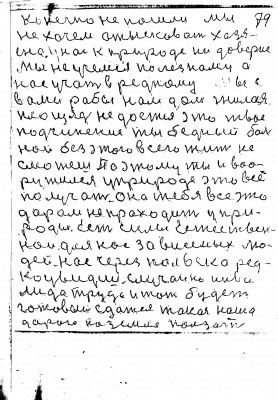 конечно не пошли мы 79
не хочем отысковать хозя-
ина. У нас к природе ни доверие
Мы не учемся полезному а
нас учат вредному Мы с
вами рабы нам дом жилая
площядь не достня это твое
подчинение ты бедный бол
ной без этого всего жит не
сможеш Поэтому ты и воо-
ружился у природе это всё
получат. Она тебя все это
даром не проходит у при-
роды. Ест силы естествен-
ной. для нас зависемых лю-
дей. Нас через польско ред-
ко увидиш случайно инва
лида труда и тот будет
готовый сдатся такая наша
дорога по земле ползат